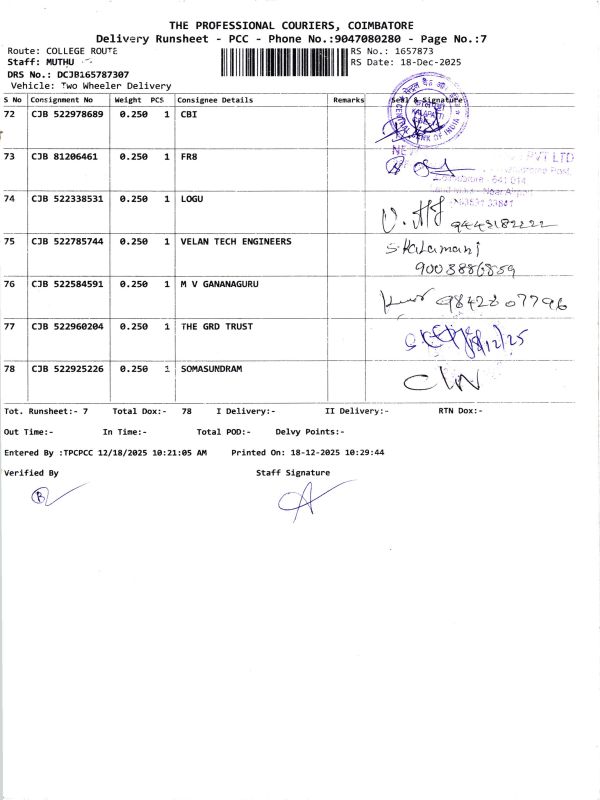 THE PROFESSIONAL COURIERS, COIMBATORE
Delivery Runsheet - PCC - Phone No.:9047080280 - Page No.:7
Route: COLLEGE ROUTE
RS No.: 1657873
Staff: MUTHU
RS Date: 18-Dec-2025
DRS No.: DCJB165787307
Vehicle: Two Wheeler Delivery
S No Consignment No Weight PCS Consignee Details Remarks Seal & Signature
72 CJB 522978689 0.250 1 CBI
73 CJB 81206461 0.250 1 FR8
PVT LTD
74 CJB 522338531 0.250 1 LOGU
9443182222
75 CJB 522785744 0.250 1 VELAN TECH ENGINEERS
S.Kalamani
9003886859
76 CJB 522584591 0.250 1 M V GANANAGURU
9842807796
77 CJB 522960204 0.250 1 THE GRD TRUST
18/12/25
78 CJB 522925226 0.250 1 SOMASUNDRAM
Tot. Runsheet:- 7 Total Dox:- 78 I Delivery:- II Delivery:- RTN Dox:-
Out Time:- In Time:- Total POD:- Delvy Points:-
Entered By :TPCPCC 12/18/2025 10:21:05 AM Printed On: 18-12-2025 10:29:44
Verified By Staff Signature